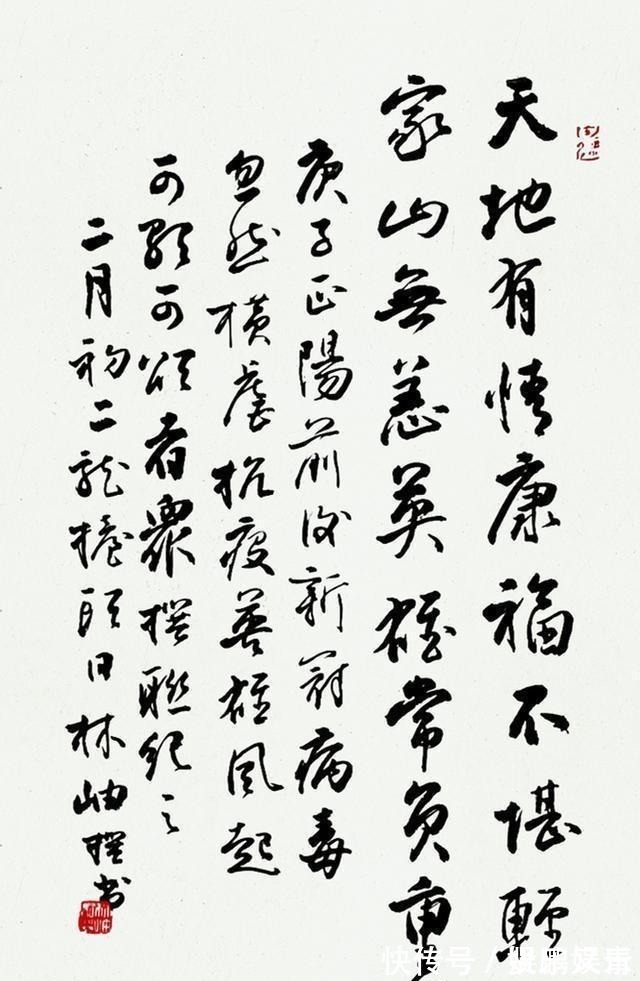 天地有情康福不堪輕
家山無恙英雄常負重
庚子正陽前後新冠病毒
忽然橫虐抗疫英雄風起
可歌可頌者眾撰聯紀之
二月初二龍擡頭日林岫撰書
快传号/